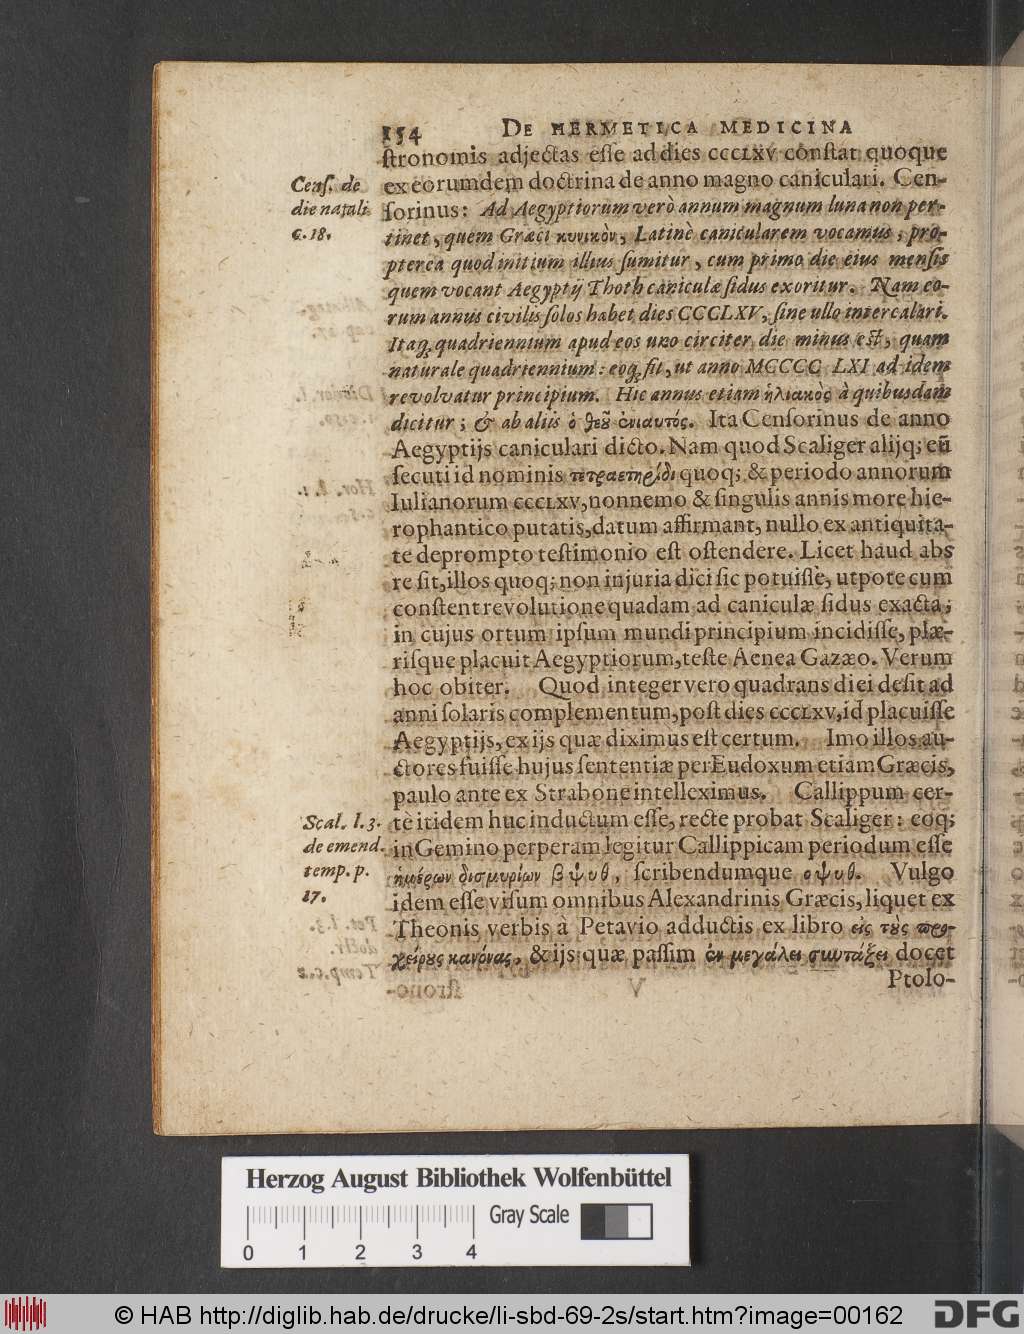 154 DE HERMETICA MEDICINA
ſtronomis adjectas eſſe ad dies CCCLXV conſtat quoque
Cenſ. de
die natali
c. 18.
ex eorumdem doctrina de anno magno caniculari. Cen-
ſorinus: Ad Aegyptiorum verò annum magnum luna non per-
tinet, quem Græci κυνικὸν, Latinè canicularem vocamus; pro-
pterea quod initium illius ſumitur, cum primo die eius menſis
quem vocant Aegyptij Thoth caniculæ ſidus exoritur. Nam eo-
rum annus civilis ſolos habet dies CCCLXV, ſine ullo intercalari.
Itaq; quadriennium apud eos uno circiter die minus eſt, quam
naturale quadriennium: eoq; fit, ut anno MCCCC LXI ad idem
revolvatur principium. Hic annus etiam ἡλιακὸς à quibusdam
dicitur; & ab aliis ὁ θεοῦ ἐνιαυτός. Ita Cenſorinus de anno
Aegyptijs caniculari dicto. Nam quod Scaliger alijq; eū
ſecuti id nominis τετραετηρίδι quoq; & periodo annorum
Iulianorum CCCLXV, nonnemo & ſingulis annis more hie-
rophantico putatis, datum affirmant, nullo ex antiquita-
te deprompto teſtimonio eſt oſtendere. Licet haud abs
re ſit, illos quoq; non injuria dici ſic potuiſſe, utpote cum
conſtent revolutione quadam ad caniculæ ſidus exacta;
in cujus ortum ipſum mundi principium incidiſſe, plæ-
riſque placuit Aegyptiorum, teſte Aenea Gazæo. Verum
hoc obiter. Quod integer vero quadrans diei deſit ad
anni ſolaris complementum, poſt dies CCCLXV, id placuiſſe
Aegyptijs, ex ijs quæ diximus eſt certum. Imo illos au-
ctores fuiſſe hujus ſententiæ per Eudoxum etiam Græcis,
paulo ante ex Strabone intelleximus. Callippum cer-
Scal. l. 3.
de emend.
temp. p.
17.
tè itidem huc inductum eſſe, recte probat Scaliger: eoq;
in Gemino perperam legitur Callippicam periodum eſſe
ἡμέρων δισμυρίων β ψνθ, ſcribendumque οψνθ. Vulgo
idem eſſe viſum omnibus Alexandrinis Græcis, liquet ex
Theonis verbis à Petavio adductis ex libro εἰς τοὺς προ-
χείρους κανόνας, & ijs quæ paſſim ἐν μεγάλει συντάξει docet
Ptolo-
Herzog August Bibliothek Wolfenbüttel
Gray Scale
0 1 2 3 4
© HAB http://diglib.hab.de/drucke/li-sbd-69-2s/start.htm?image=00162
DFG